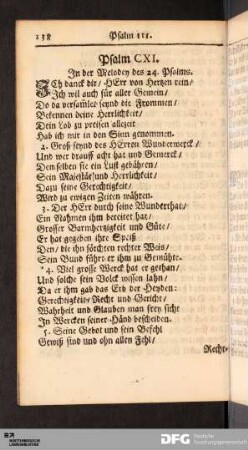 138 Psalm 111.
Psalm CXI.
In der Melodey des 24. Psalms.
ICh danck dir/ HErr von Hertzen rein/
Ich wil auch für aller Gemein/
Do da versamlet seynd die Frommen/
Bekennen deine Herrlichkeit/
Dein Lob zu preisen allezeit
Hab ich mir in den Sinn genommen.
2. Groß seynd des HErren Wunderwerck/
Und wer drauff acht hat und Gemerck/
Den selben sie ein Lust gebähren/
Sein Majestät/und Herrlichkeit/
Dazu seine Gerechtigkeit/
Wird zu ewigen Zeiten währen.
3. Der HErr durch seine Wunderthat/
Ein Nahmen ihm bereitet hat/
Grosser Barmhertzigkeit und Güte/
Er hat gegeben ihre Speiß
Den/ die ihn förchten rechter Weis/
Sein Bund führt er ihm zu Gemühte.
*4. Viel grosse Werck hat er gethan/
Und solche sein Volck wissen lahn/
Da er ihm gab das Erb der Heyden:
Gerechtigkeit/ Recht und Gericht/
Wahrheit und Glauben man sieh sicht
In Wercken seiner Händ bescheiden.
5. Seine Gebot und sein Befehl
Gewiß sind und ohn allen Fehl/
Recht-
DFG